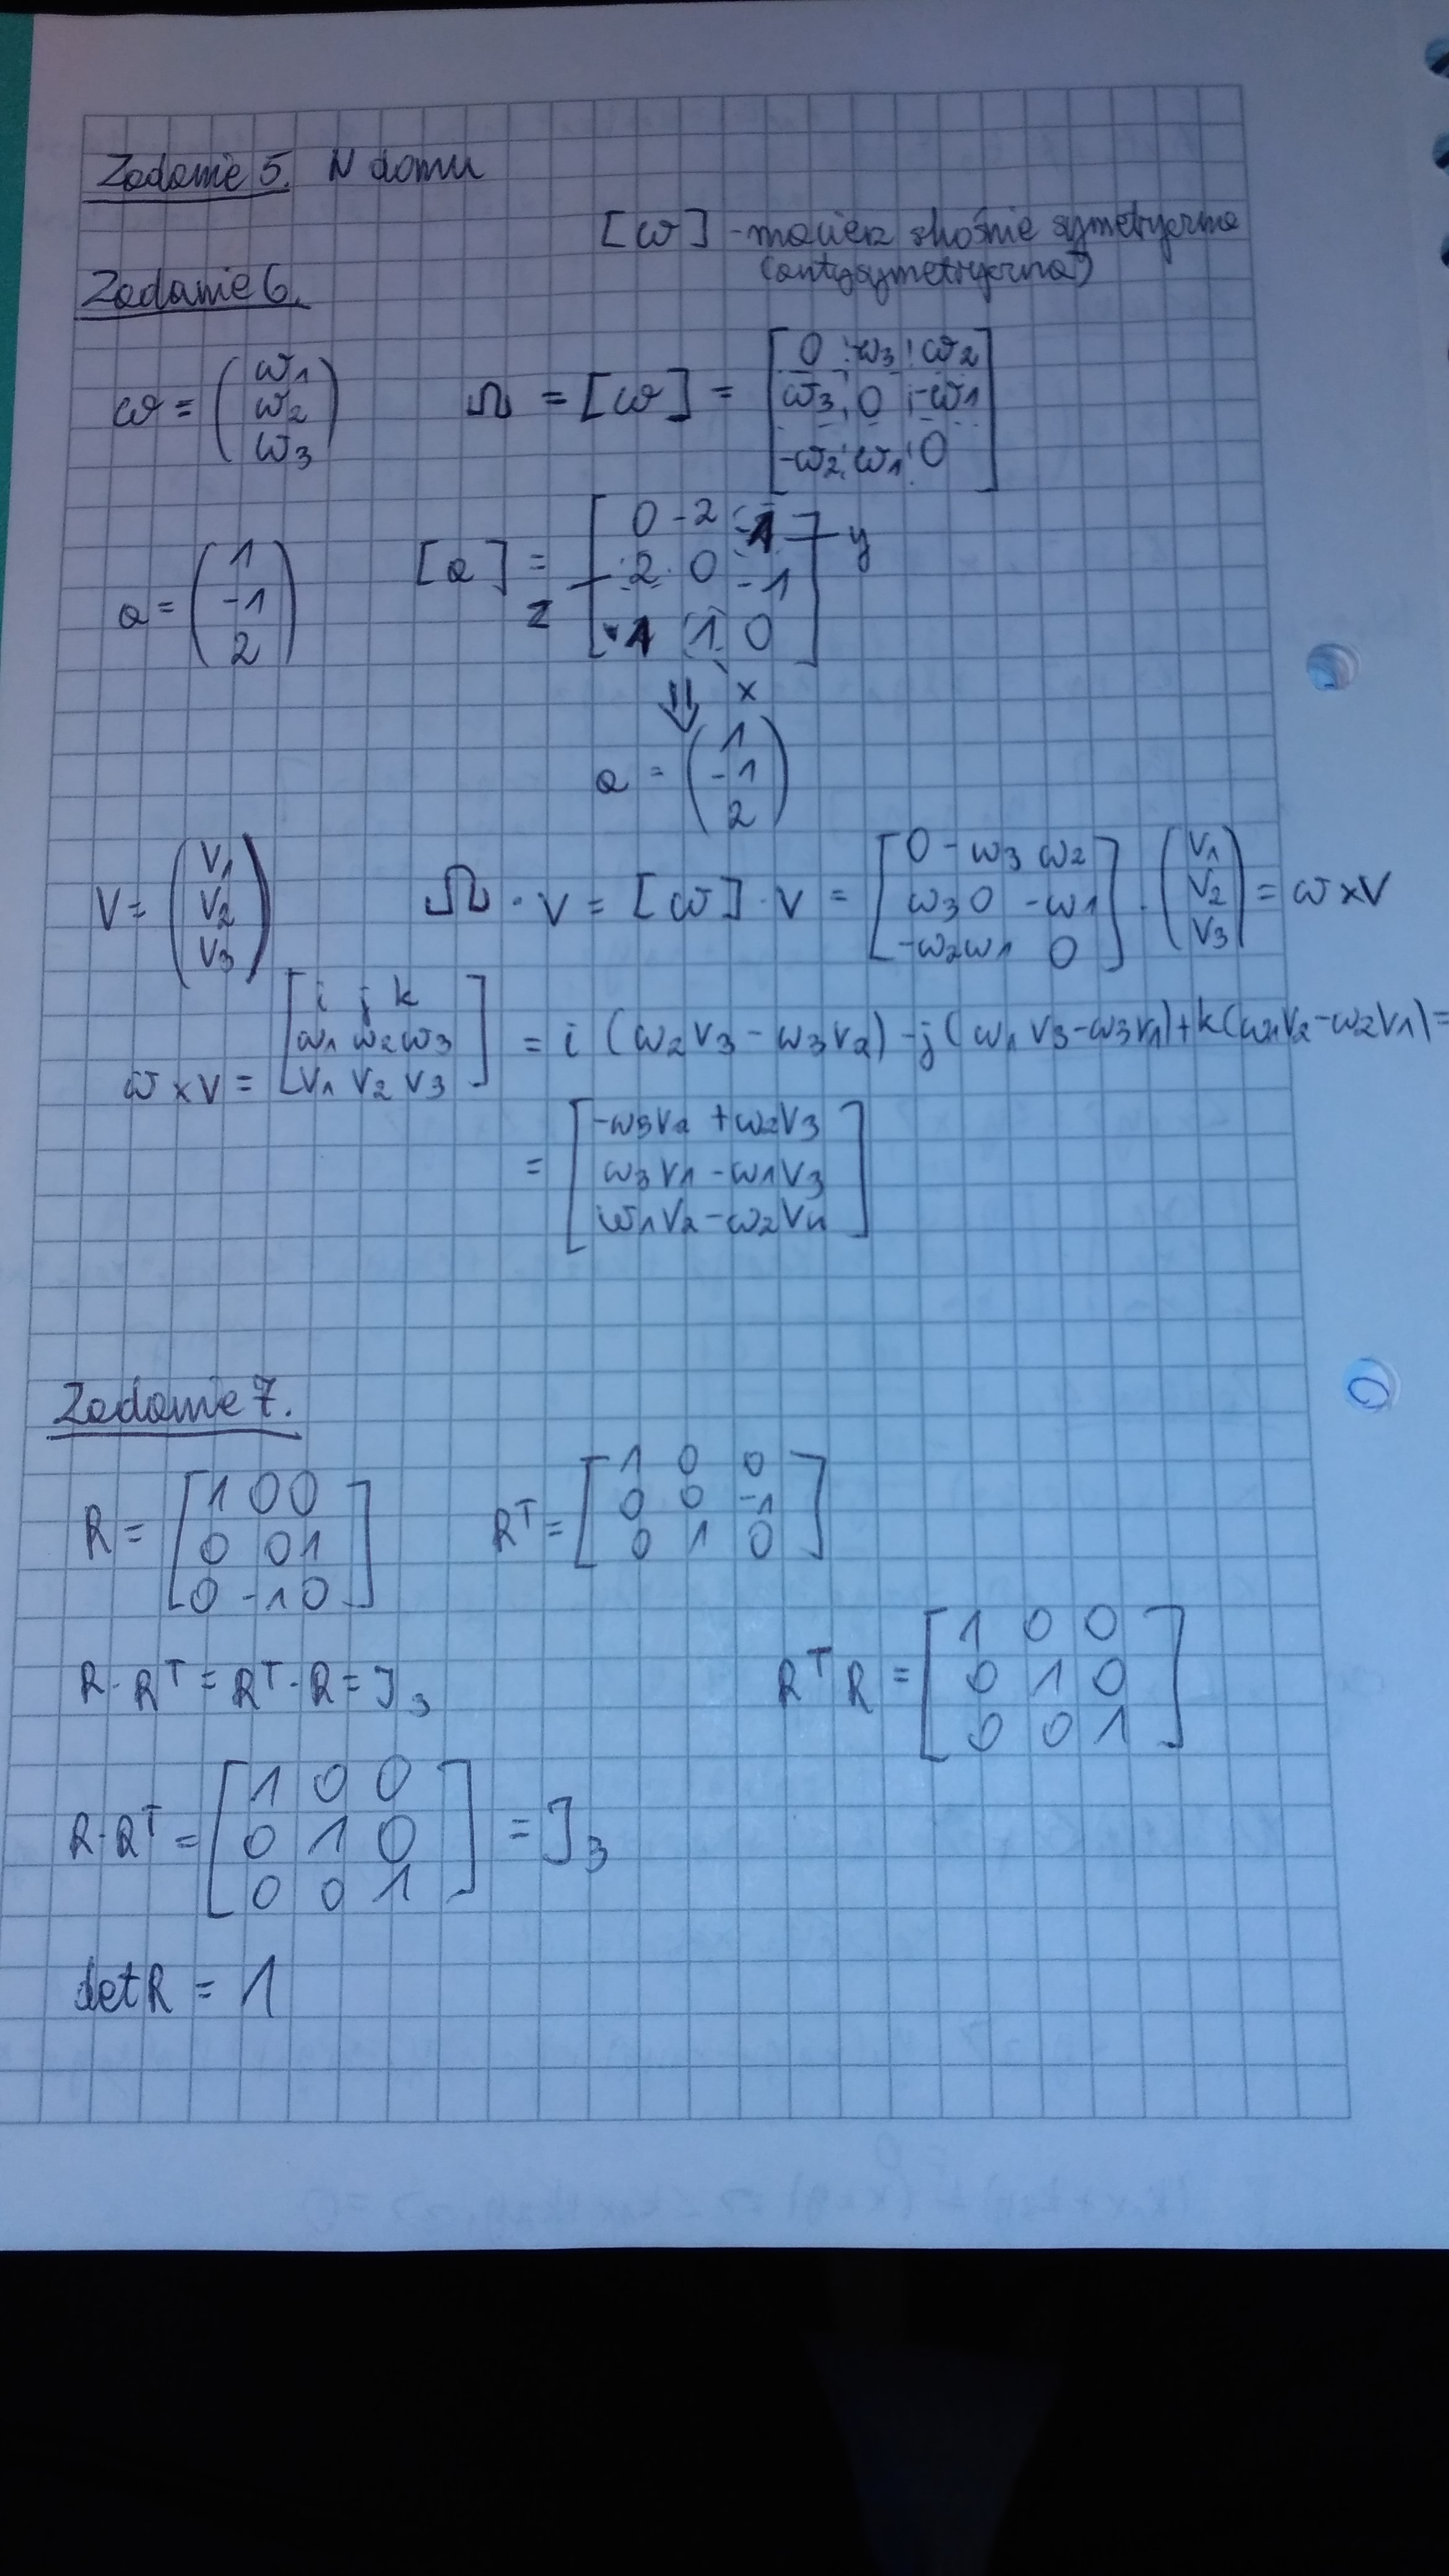 Zadanie 5. W domu
[ω] - macierz skośnie symetryczna
(antysymetryczna)
Zadanie 6.
ω = (ω1 ω2 ω3) Ω = [ω] = [0 -ω3 ω2
ω3 0 -ω1
-ω2 ω1 0]
a = (1 -1 2) [a] = [0 -2 -1
2 0 -1
1 1 0] y
z
x
⇓
a = (1 -1 2)
V = (V1 V2 V3) Ω · V = [ω] · V = [0 -ω3 ω2
ω3 0 -ω1
-ω2 ω1 0] · (V1 V2 V3) = ω × V
ω × V = [i j k
ω1 ω2 ω3
V1 V2 V3] = i (ω2V3 - ω3V2) - j(ω1V3 - ω3V1) + k(ω1V2 - ω2V1) =
= [-ω3V2 + ω2V3
ω3V1 - ω1V3
ω1V2 - ω2V1]
Zadanie 7.
R = [1 0 0
0 0 1
0 -1 0]
R^T = [1 0 0
0 0 -1
0 1 0]
R · R^T = R^T · R = J3
R^T R = [1 0 0
0 1 0
0 0 1]
R · R^T = [1 0 0
0 1 0
0 0 1] = J3
det R = 1